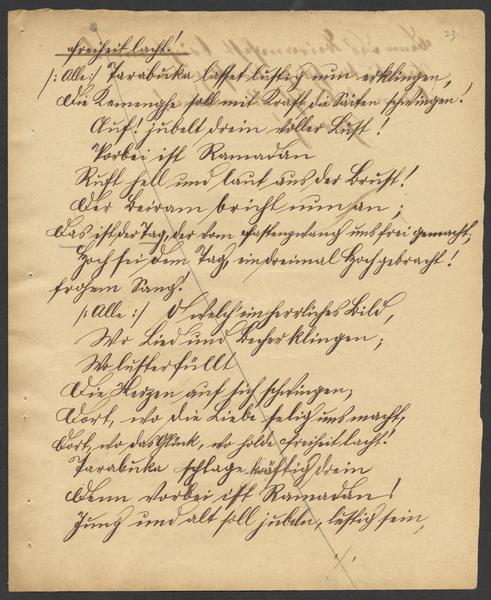 23
Freiheit lacht!
/: Alle :/ Tarabuka lasset lustig nun erklingen,
Die Kemenghe soll mit Kraft die Saiten schwingen!
Auf! jubelt drein voller Lust!
Vorbei ist Ramadan
Ruft hell und laut aus der Brust!
Der Beiram bricht nun an;
Das ist der Tag, der vom Fastenzwang uns frei gemacht,
Hoch sei dem Tag, ein dreimal Hoch gebracht!
frohem Sang!
/: Alle :/ O welch ein herrliches Bild,
Wo Lied und Becher klingen;
Wo lusterfüllt
Die Herzen auf sich schwingen,
Dort, wo die Liebe selig uns macht,
Dort, wo das Glück, wo holde Freiheit lacht!
Tarabuka schlage kräftig drein
Denn vorbei ist Ramadan!
Jung und alt soll jubeln, lustig sein,